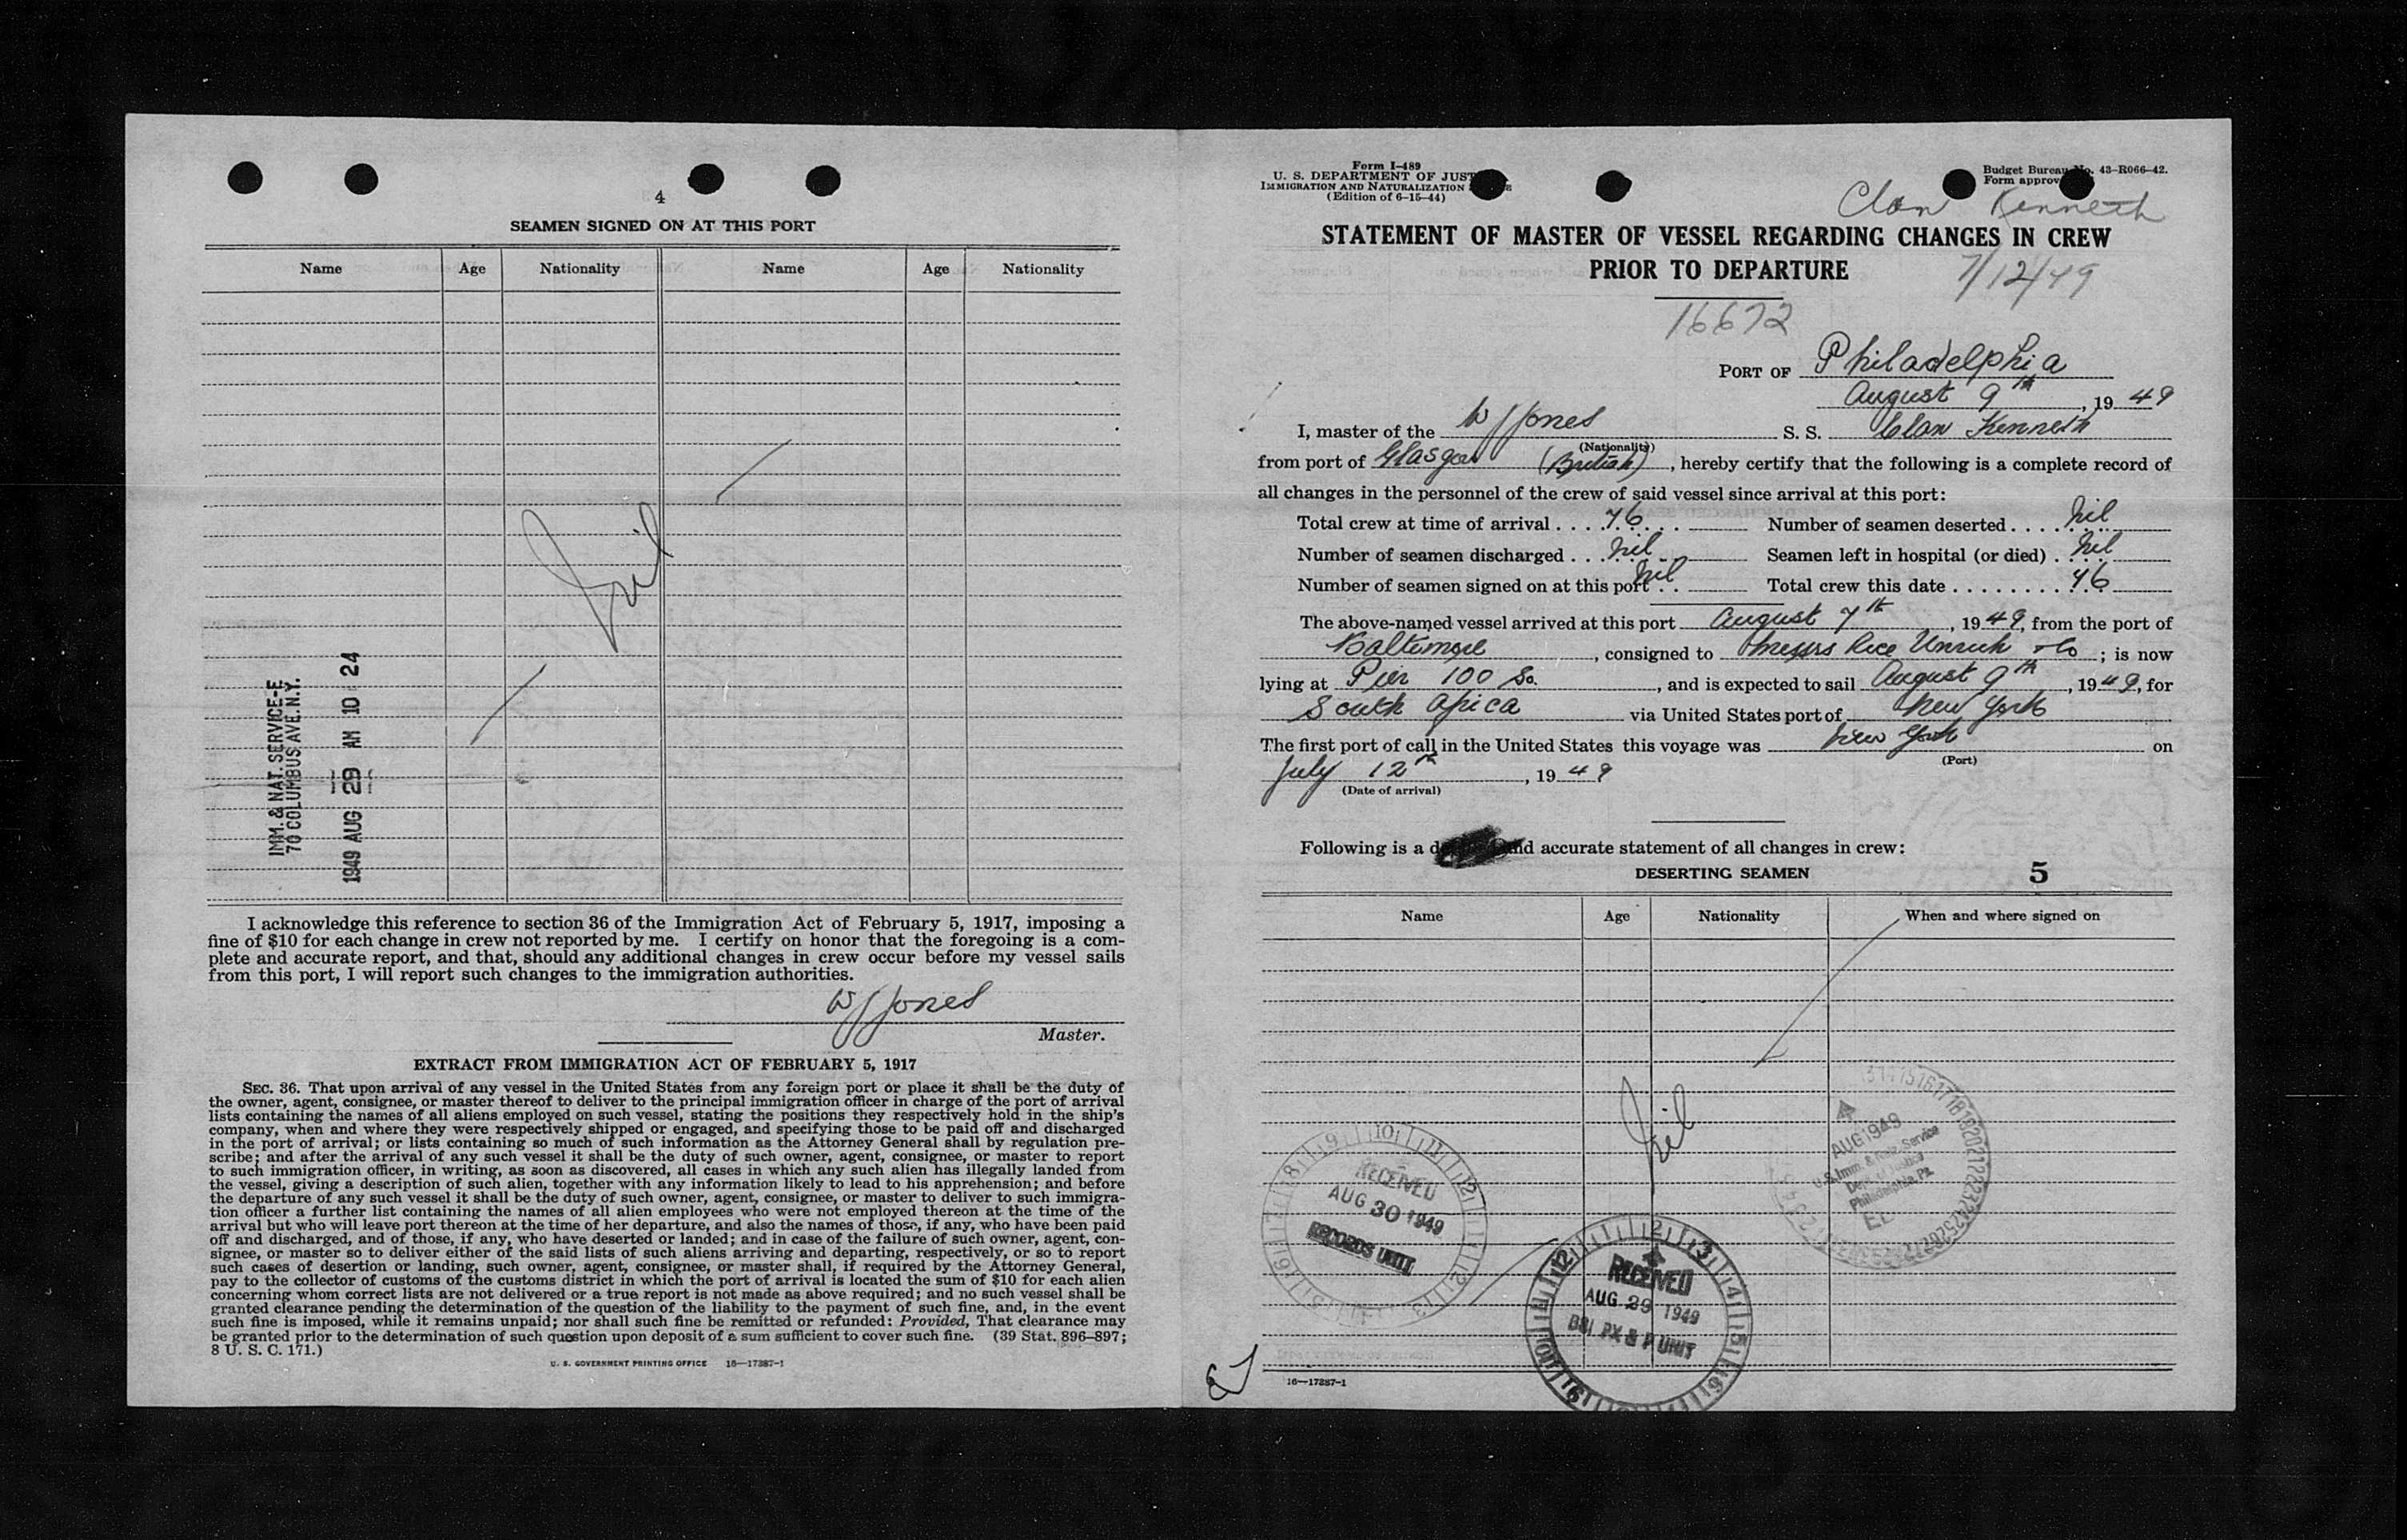 4
SEAMEN SIGNED ON AT THIS PORT
Name Age Nationality Name Age Nationality
Nil
IMM. & NAT. SERVICE-E
70 COLUMBUS AVE. N.Y.
1949 AUG 29 AM 10 24
I acknowledge this reference to section 36 of the Immigration Act of February 5, 1917, imposing a
fine of $10 for each change in crew not reported by me. I certify on honor that the foregoing is a com-
plete and accurate report, and that, should any additional changes in crew occur before my vessel sails
from this port, I will report such changes to the immigration authorities.
W J Jones
Master.
EXTRACT FROM IMMIGRATION ACT OF FEBRUARY 5, 1917
SEC. 36. That upon arrival of any vessel in the United States from any foreign port or place it shall be the duty of
the owner, agent, consignee, or master thereof to deliver to the principal immigration officer in charge of the port of arrival
lists containing the names of all aliens employed on such vessel, stating the positions they respectively hold in the ship's
company, when and where they were respectively shipped or engaged, and specifying those to be paid off and discharged
in the port of arrival; or lists containing so much of such information as the Attorney General shall by regulation pre-
scribe; and after the arrival of any such vessel it shall be the duty of such owner, agent, consignee, or master to report
to such immigration officer, in writing, as soon as discovered, all cases in which any such alien has illegally landed from
the vessel, giving a description of such alien, together with any information likely to lead to his apprehension; and before
the departure of any such vessel it shall be the duty of such owner, agent, consignee, or master to deliver to such immigra-
tion officer a further list containing the names of all alien employees who were not employed thereon at the time of the
arrival but who will leave port thereon at the time of her departure, and also the names of those, if any, who have been paid
off and discharged, and of those, if any, who have deserted or landed; and in case of the failure of such owner, agent, con-
signee, or master so to deliver either of the said lists of such aliens arriving and departing, respectively, or so to report
such cases of desertion or landing, such owner, agent, consignee, or master shall, if required by the Attorney General,
pay to the collector of customs of the customs district in which the port of arrival is located the sum of $10 for each alien
concerning whom correct lists are not delivered or a true report is not made as above required; and no such vessel shall be
granted clearance pending the determination of the question of the liability to the payment of such fine, and, in the event
such fine is imposed, while it remains unpaid; nor shall such fine be remitted or refunded: Provided, That clearance may
be granted prior to the determination of such question upon deposit of a sum sufficient to cover such fine. (39 Stat. 896–897;
8 U. S. C. 171.)
U. S. GOVERNMENT PRINTING OFFICE 16—17387-1
Form I-489
U. S. DEPARTMENT OF JUST
IMMIGRATION AND NATURALIZATION
(Edition of 6-15-44)
Budget Bureau No. 43-R066-42.
Form approv
Clan Kenneth
STATEMENT OF MASTER OF VESSEL REGARDING CHANGES IN CREW
PRIOR TO DEPARTURE
7/12/49
16672
PORT OF Philadelphia
August 9th, 19 49
I, master of the W J Jones S. S. Clan Kenneth
(Nationality)
from port of Glasgow (British), hereby certify that the following is a complete record of
all changes in the personnel of the crew of said vessel since arrival at this port:
Total crew at time of arrival . . . . 76 Number of seamen deserted . . . . nil
Number of seamen discharged . . . nil Seamen left in hospital (or died) . nil
Number of seamen signed on at this port . . nil Total crew this date . . . . . . . . 76
The above-named vessel arrived at this port August 7th, 19 49, from the port of
Baltimore, consigned to Messrs Rice Unruh & Co; is now
lying at Pier 100 So., and is expected to sail August 9th, 19 49, for
South Africa via United States port of New York
The first port of call in the United States this voyage was New York on
(Port)
July 12th, 19 49
(Date of arrival)
Following is a and accurate statement of all changes in crew:
DESERTING SEAMEN 5
Name Age Nationality When and where signed on
Nil
AUG 1949
U.S. Imm. & Natz. Service
Dept. of Justice
Philadelphia, Pa.
RECEIVED
AUG 30 1949
RECORDS UNIT
RECEIVED
AUG 29 1949
P UNIT
16—17387-1